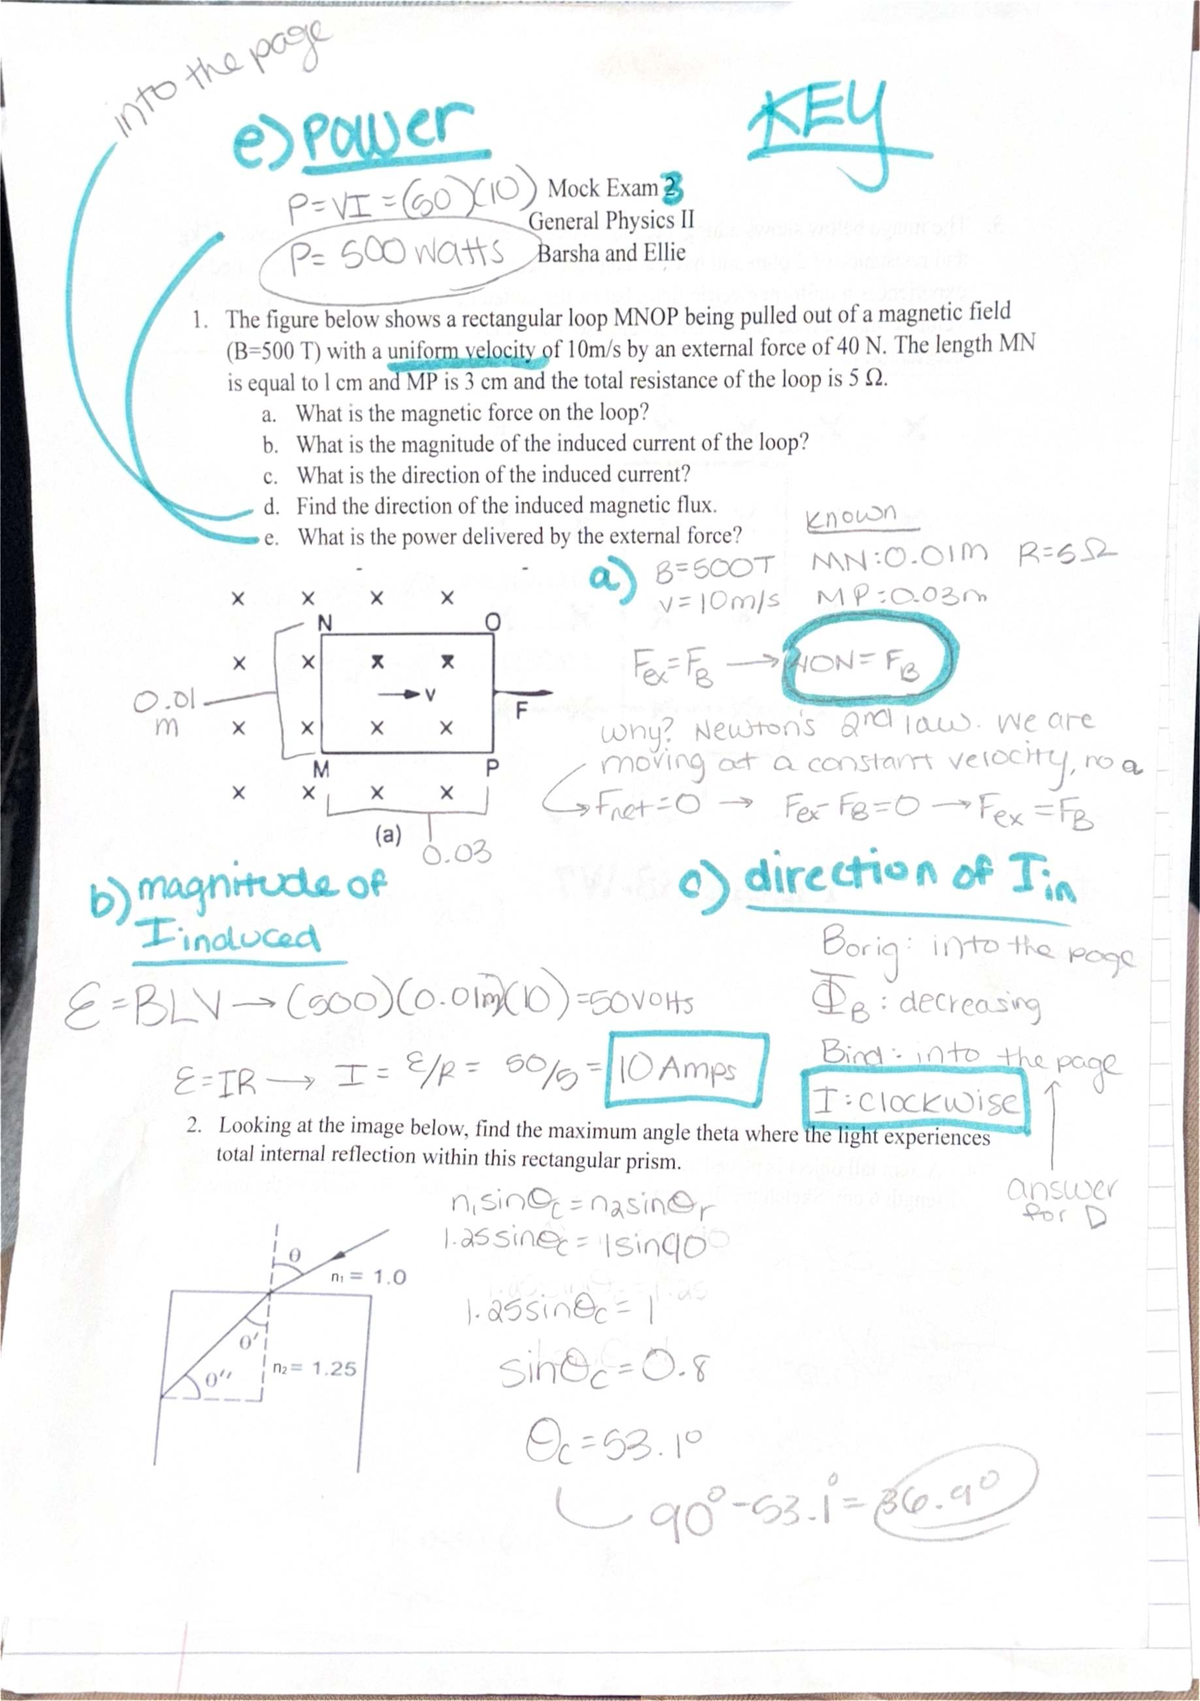 into the page
e) Power
KEY
P=VI=(50)(10)
P= 500 watts
Mock Exam 3
General Physics II
Barsha and Ellie
1. The figure below shows a rectangular loop MNOP being pulled out of a magnetic field
(B=500 T) with a uniform velocity of 10m/s by an external force of 40 N. The length MN
is equal to 1 cm and MP is 3 cm and the total resistance of the loop is 5 Ω.
a. What is the magnetic force on the loop?
b. What is the magnitude of the induced current of the loop?
c. What is the direction of the induced current?
d. Find the direction of the induced magnetic flux.
e. What is the power delivered by the external force?
Known
a) B=500T MN:0.01m R=5Ω
v=10m/s MP:0.03m
Fex=FB → 40N=FB
why? Newton's 2nd law. We are
moving at a constant velocity, no a
↳Fnet=0 → Fex-FB=0 → Fex=FB
x x x x
N O
x x x x
→ v
0.01
m
F
x x x x
M P
x x x x
(a)
0.03
b) magnitude of
I induced
ε=BLV → (500)(0.01m)(10)=50volts
ε=IR → I= ε/R= 50/5= 10 Amps
c) direction of Iin
Borig: into the page
ΦB: decreasing
Bind: into the page
I: clockwise
answer
for D
2. Looking at the image below, find the maximum angle theta where the light experiences
total internal reflection within this rectangular prism.
n₁sinθc=n₂sinθr
1.25sinθc=1sin90
1.25sinθc=1
sinθc=0.8
θc=53.1°
90°-53.1°=36.9°
θ
n₁ = 1.0
θ'
θ''
n₂ = 1.25